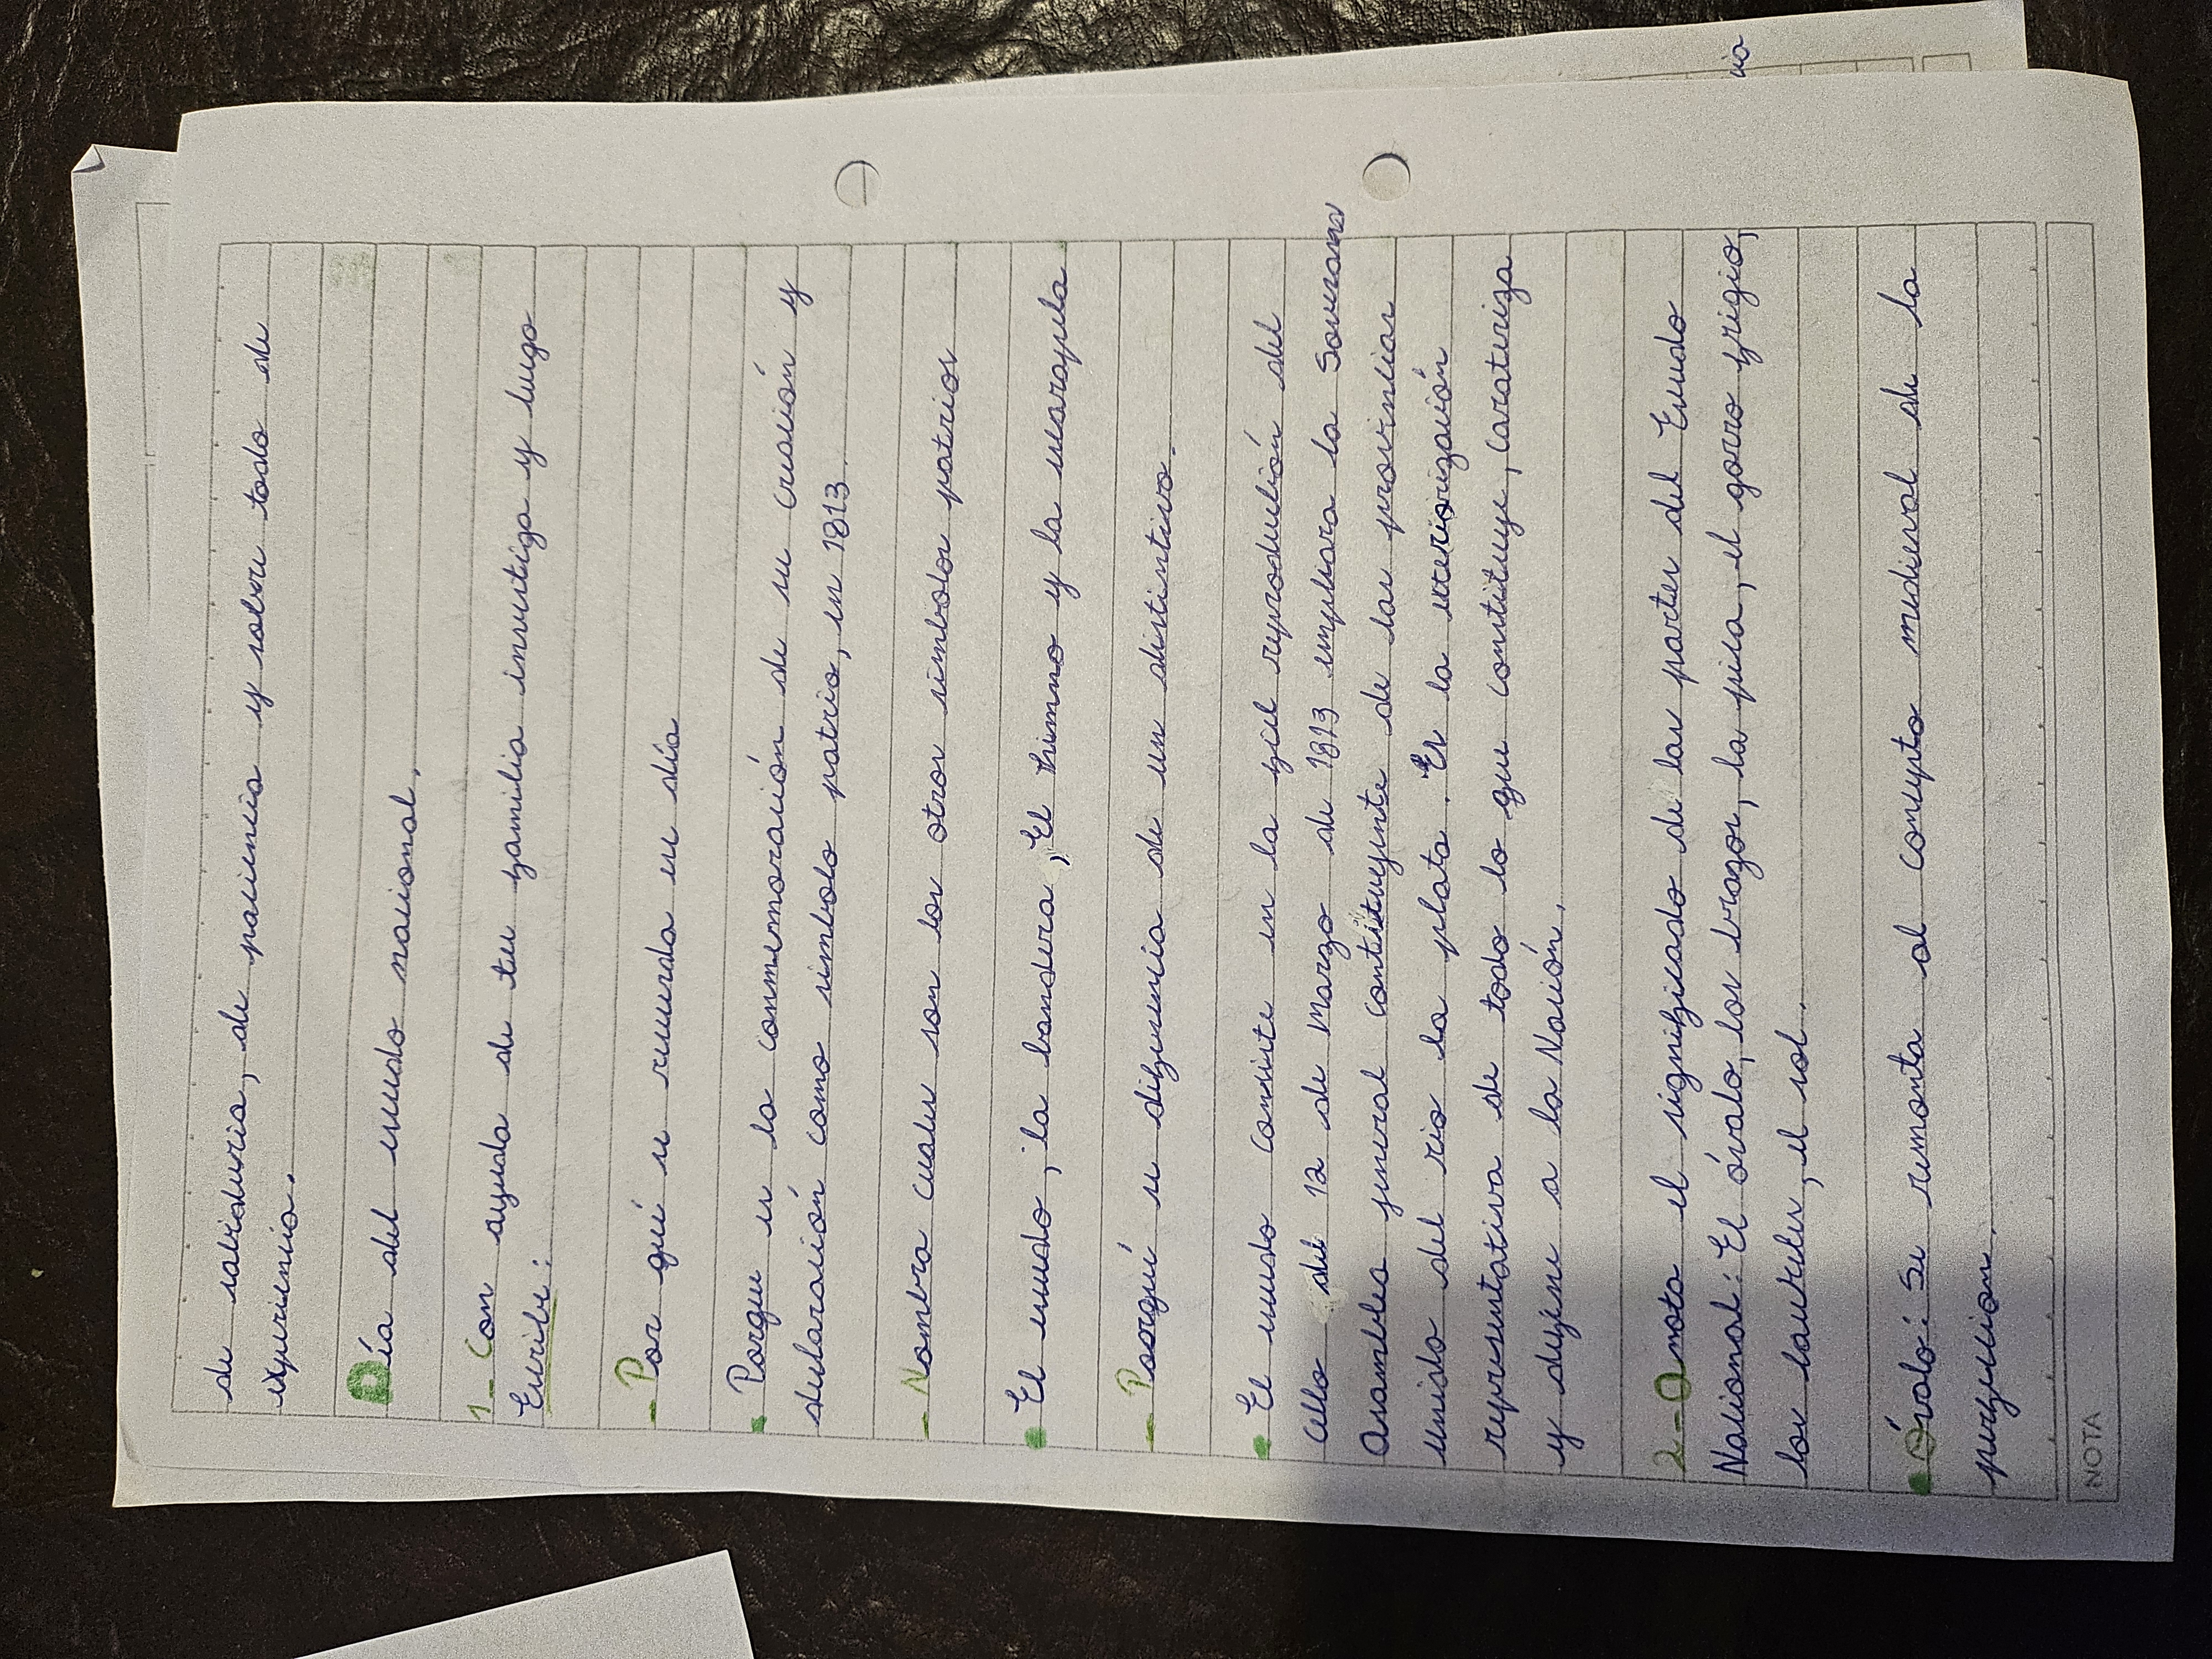 de sabiduria, de paciencia y sobre todo de
experiencia.
Día del escudo nacional.
1_ Con ayuda de tu familia investiga y luego
Escribi:
- Por qué se recuerda ese día
• Porque es la conmemoración de su creación y
declaración como simbolo patrio, en 1813.
- Nombra cuales son los otros simbolos patrios
• El escudo, la bandera, El himno y la escarapela
- Poorqué se diferencia de un distintivo.
• El escudo consiste en la fiel reproducción del
cello del 12 de Marzo de 1813 empleara la Soverana
Asamblea jeneral contituyente de las provincias
unidas del rio la plata. Es la exteriorización
representativa de todo lo que constituye, carateriza
y dejine a la Nación.
2_ Anota el significado de las partes del Escudo
Nacional: El óvalo, los brazos, la pica, el gorro frigio,
los laureles, el sol.
• Óvalo: Se remonta al consepto medieval de la
perfeccion.
NOTA